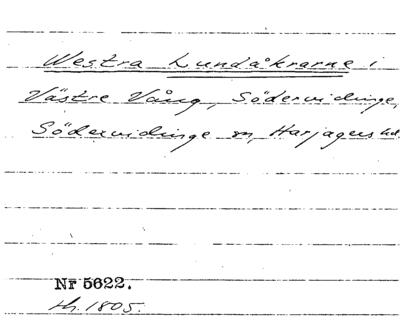 Westra Lundåkrarne i
Västre Vång, Södervidinge,
Södervidinge sn, Harjagers hd.
Nr 5622.
th. 1805.